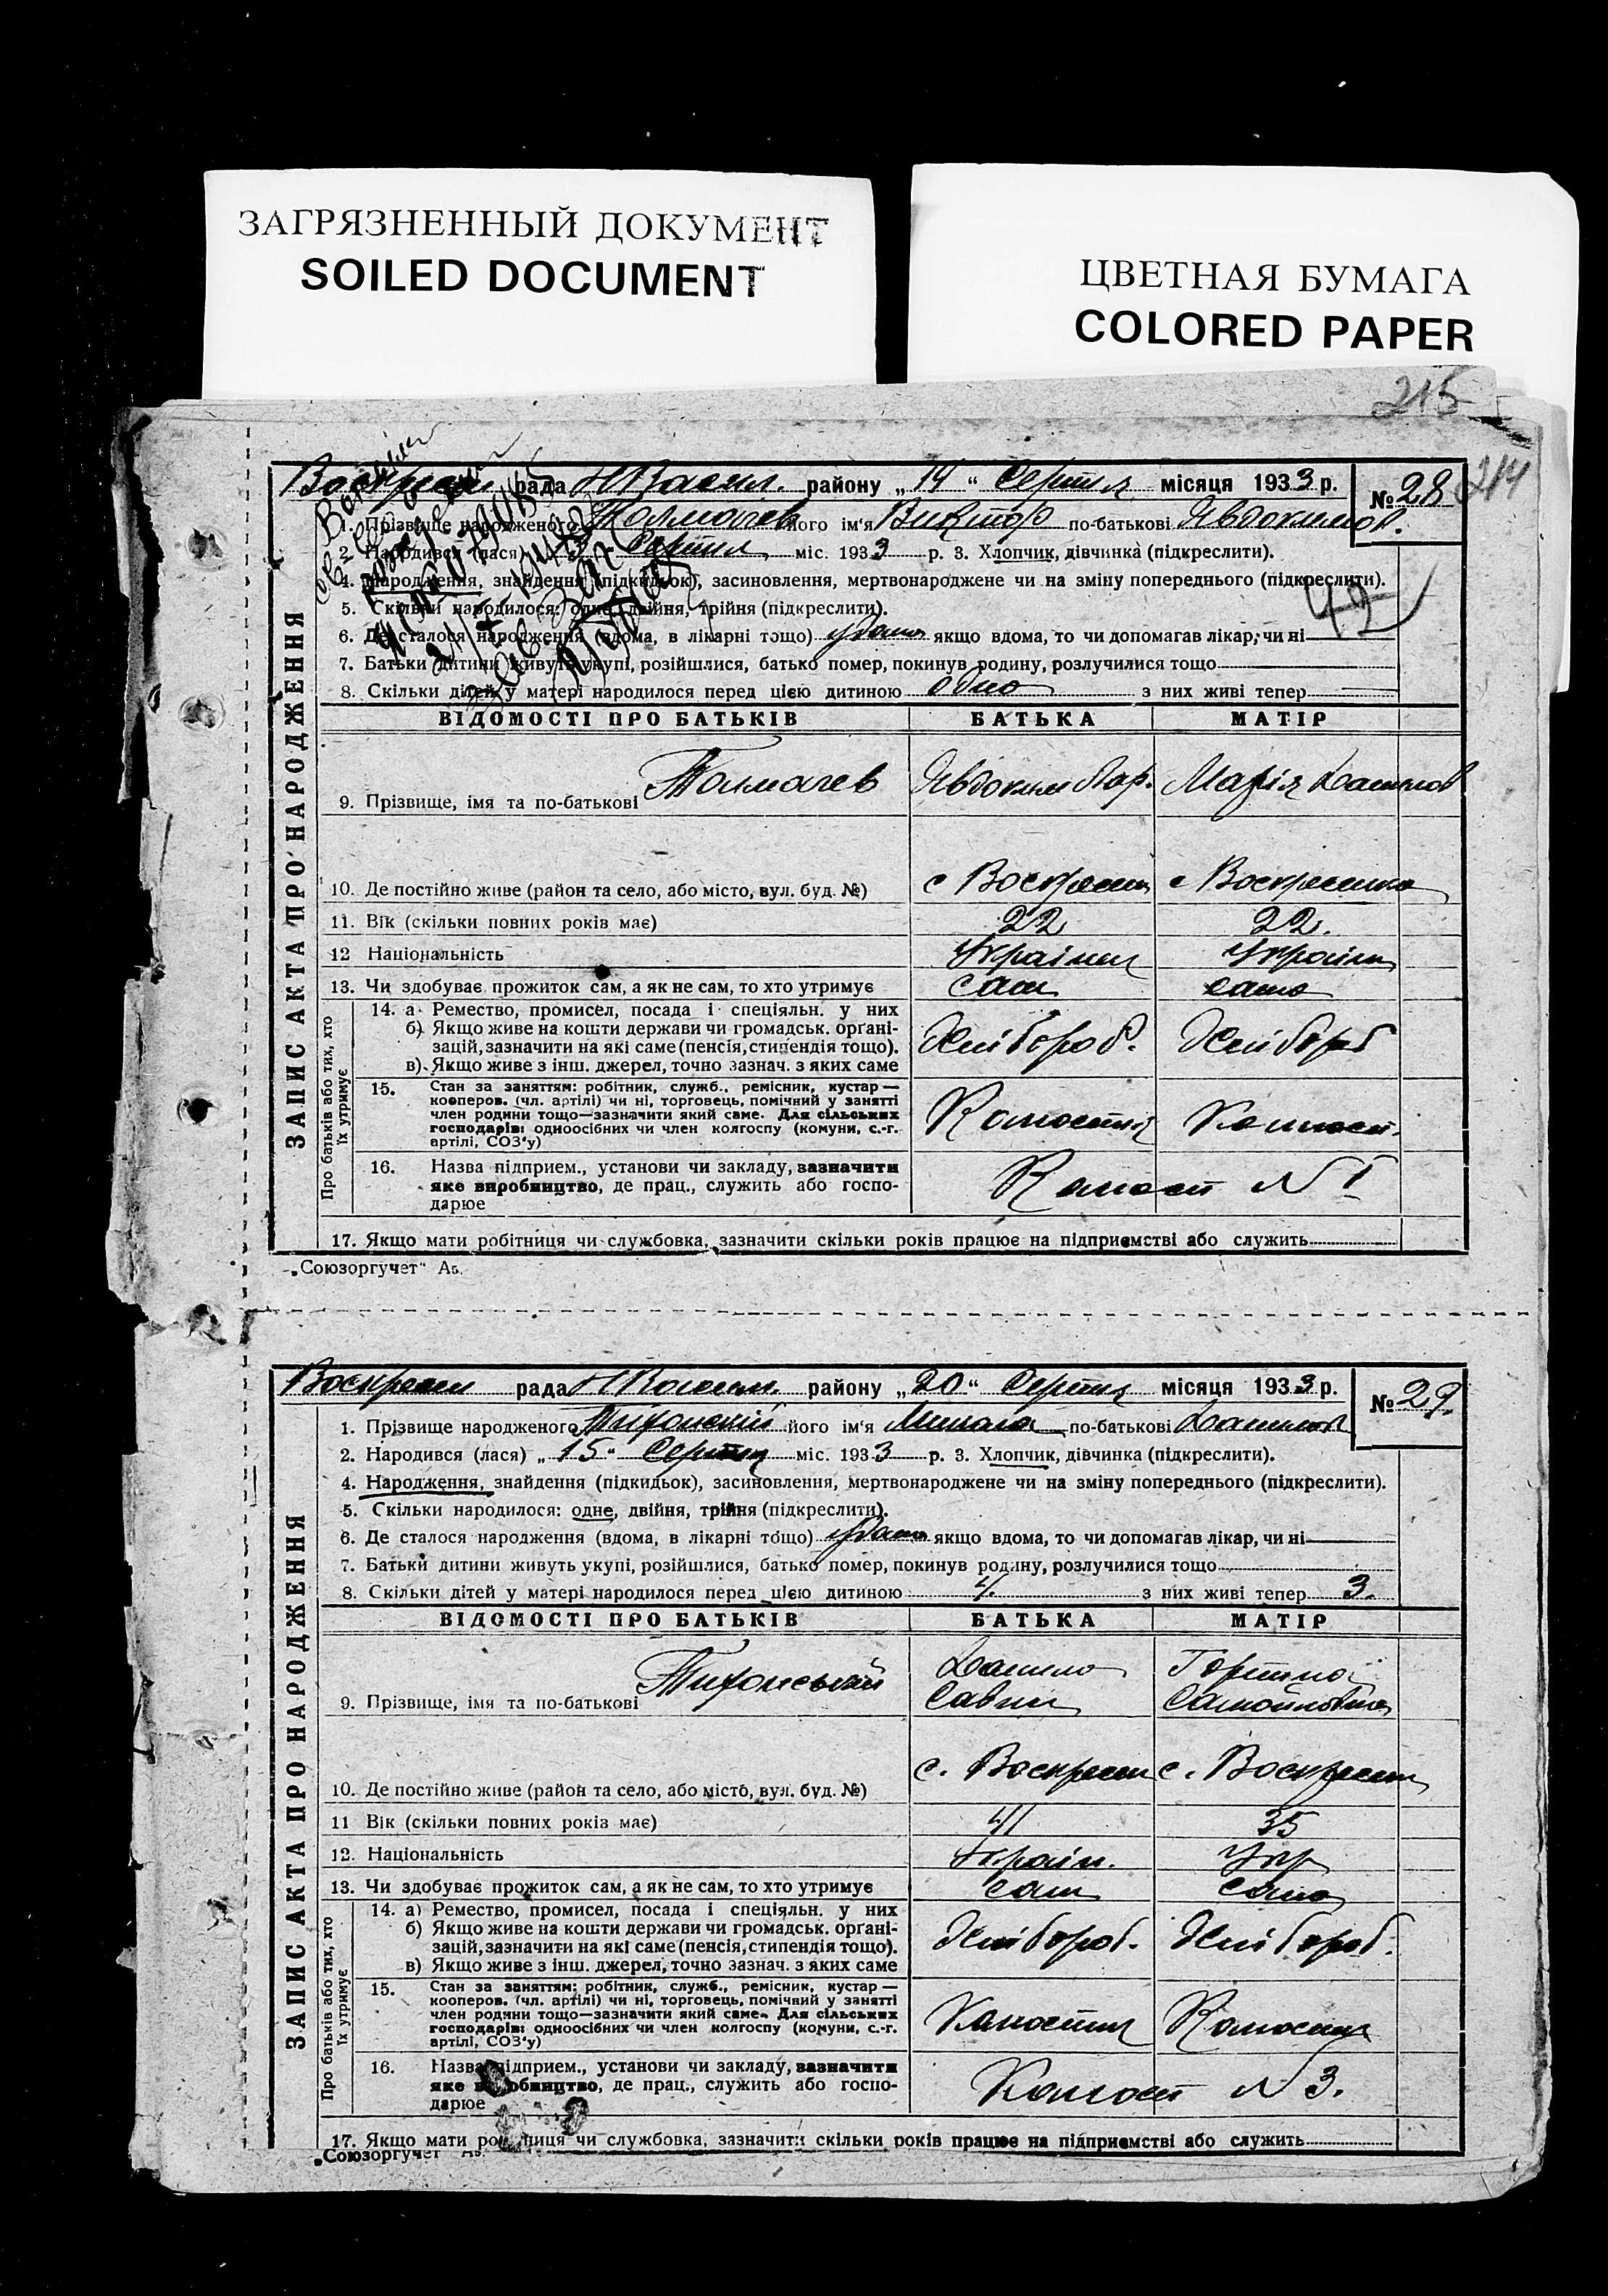 ЗАГРЯЗНЕННЫЙ ДОКУМЕНТ
SOILED DOCUMENT
ЦВЕТНАЯ БУМАГА
COLORED PAPER
215
214
рада району „14“ Серпня місяця 1933 р. №28
1. Прізвище народженого Толмачев його ім'я Виктор по-батькові Явдокимов.
2. Народився (лася) Серпня міс. 1933 р. 3. Хлопчик, дівчинка (підкреслити).
4. Народження, знайдення (підкидьок), засиновлення, мертвонароджене чи на зміну попереднього (підкреслити).
5. Скільки народилося: одне, двійня, трійня (підкреслити).
42
6. Де сталося народження (вдома, в лікарні тощо) удома якщо вдома, то чи допомагав лікар, чи ні
7. Батьки дитини живуть укупі, розійшлися, батько помер, покинув родину, розлучилися тощо
8. Скільки дітей у матері народилося перед цією дитиною одно з них живі тепер
ЗАПИС АКТА ПРО НАРОДЖЕННЯ
ВІДОМОСТІ ПРО БАТЬКІВ БАТЬКА МАТІР
9. Прізвище, імя та по-батькові Толмачев Явдоким Мар
10. Де постійно живе (район та село, або місто, вул. буд. №) с Воскресен с Воскресенка
11. Вік (скільки повних років має) 22 22.
12 Національність Українец Україн
13. Чи здобуває прожиток сам, а як не сам, то хто утримує сам сама
Про батьків або тих, хто їх утримує
14. а Ремество, промисел, посада і спеціяльн. у них
б) Якщо живе на кошти держави чи громадськ. органі-
зацій, зазначити на які саме (пенсія, стипендія тощо). Хлібороб. Хлібороб
в) Якщо живе з інш. джерел, точно зазнач. з яких саме
15. Стан за заняттям: робітник, служб., ремісник, кустар—
кооперов. (чл. артілі) чи ні, торговець, помічний у занятті
член родини тощо—зазначити який саме. Для сільських
господарів: одноосібних чи член колгоспу (комуни, с.-г.
артілі, СОЗ'у)
16. Назва підприєм., установи чи закладу, зазначити
яке виробництво, де прац., служить або госпо-
дарює
17. Якщо мати робітниця чи службовка, зазначити скільки років працює на підприємстві або служить
„Союзоргучет“ Аз.
рада району „20“ Серпня місяця 1933 р. №29.
1. Прізвище народженого його ім'я Микола по-батькові Данилов
2. Народився (лася) „15“ Серпня міс. 1933 р. 3. Хлопчик, дівчинка (підкреслити).
4. Народження, знайдення (підкидьок), засиновлення, мертвонароджене чи на зміну попереднього (підкреслити).
5. Скільки народилося: одне, двійня, трійня (підкреслити).
6. Де сталося народження (вдома, в лікарні тощо) удома якщо вдома, то чи допомагав лікар, чи ні
7. Батьки дитини живуть укупі, розійшлися, батько помер, покинув родину, розлучилися тощо
8. Скільки дітей у матері народилося перед цією дитиною 4. з них живі тепер 3.
ЗАПИС АКТА ПРО НАРОДЖЕННЯ
ВІДОМОСТІ ПРО БАТЬКІВ БАТЬКА МАТІР
Данило
9. Прізвище, імя та по-батькові Самойловна
10. Де постійно живе (район та село, або місто, вул. буд. №) с. Воскресен с. Воскресен
11 Вік (скільки повних років має) 41 35
12. Національність Україн. Укр
13. Чи здобуває прожиток сам, а як не сам, то хто утримує сам сама
Про батьків або тих, хто їх утримує
14. а) Ремество, промисел, посада і спеціяльн. у них
б) Якщо живе на кошти держави чи громадськ. органі-
зацій, зазначити на які саме (пенсія, стипендія тощо). Хлібороб. Хлібороб.
в) Якщо живе з інш. джерел, точно зазнач. з яких саме
15. Стан за заняттям: робітник, служб., ремісник, кустар—
кооперов. (чл. артілі) чи ні, торговець, помічний у занятті
член родини тощо—зазначити який саме. Для сільських
господарів: одноосібних чи член колгоспу (комуни, с.-г.
артілі, СОЗ'у)
16. Назва підприєм., установи чи закладу, зазначити
яке виробництво, де прац., служить або госпо- N 3.
дарює
17. Якщо мати робітниця чи службовка, зазначити скільки років працює на підприємстві або служить
„Союзоргучет“ Аз.